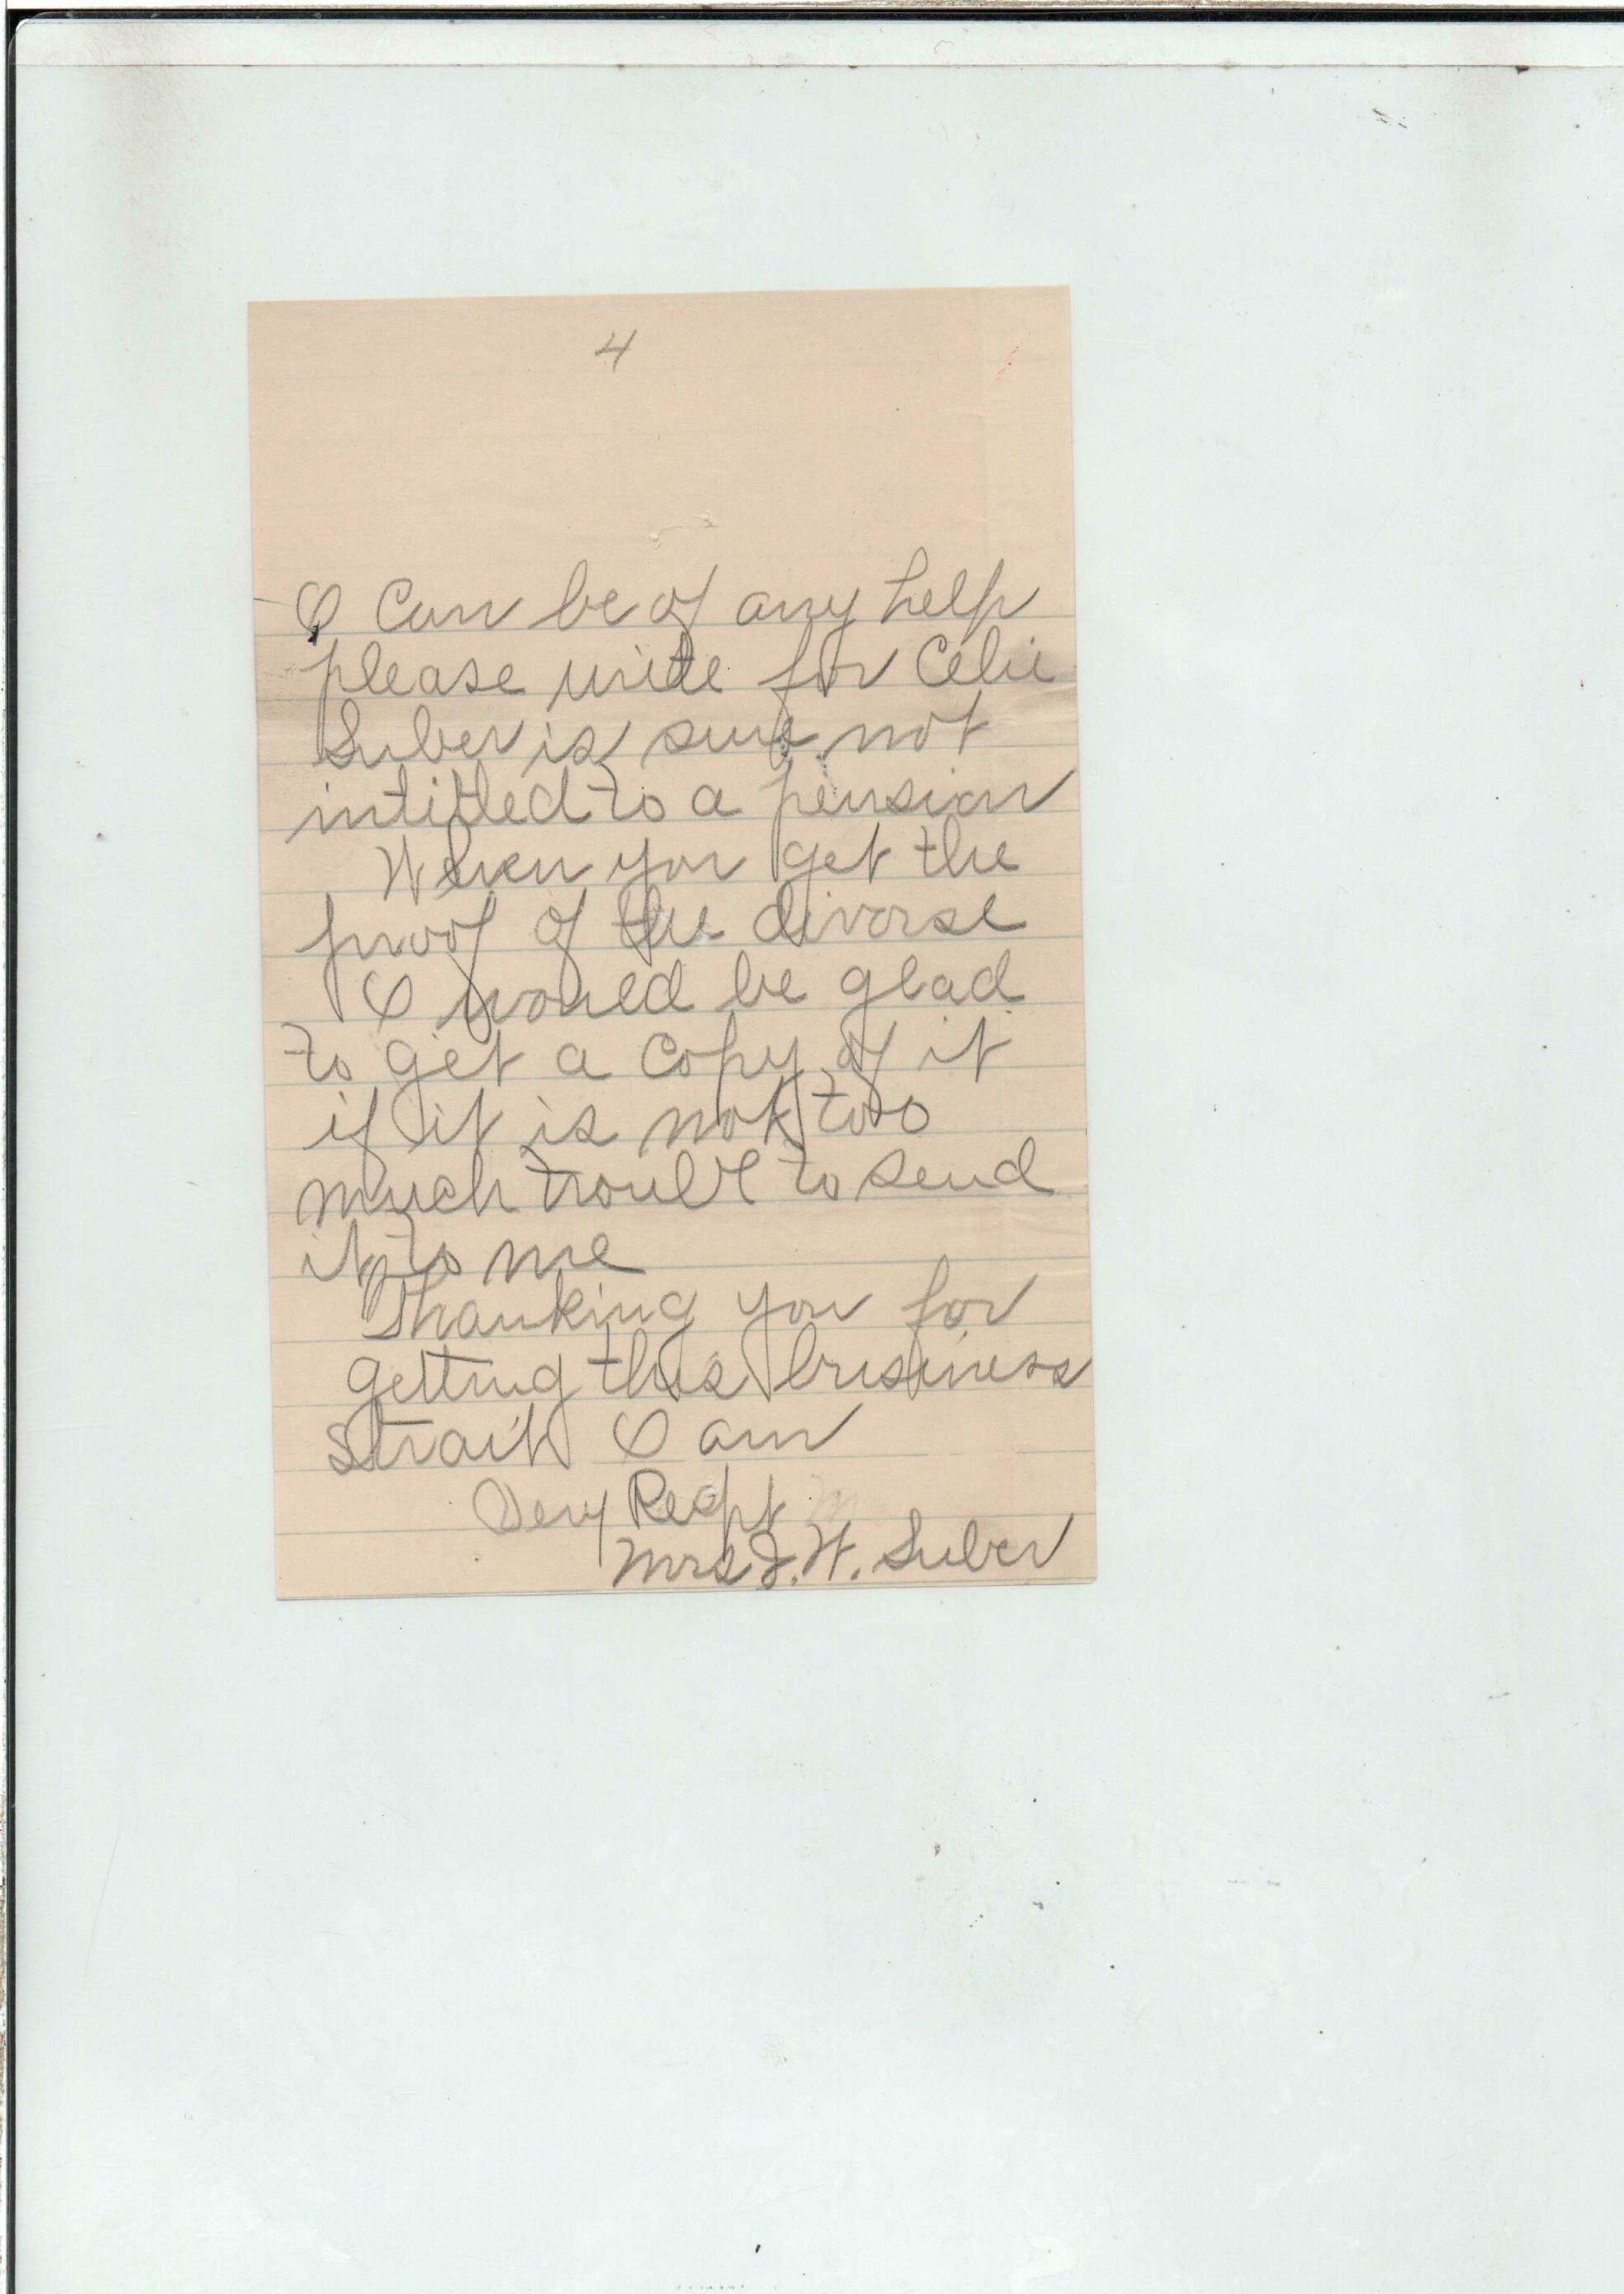 4
I can be of any help
please write for Celie
Suber is sure not
intitled to a pension
When you get the
proof of the divorse
I would be glad
to get a copy of it
if it is not too
much troubl to send
it to me
Thanking you for
getting this business
strait I am
Very Respt
Mrs J. W. Suber